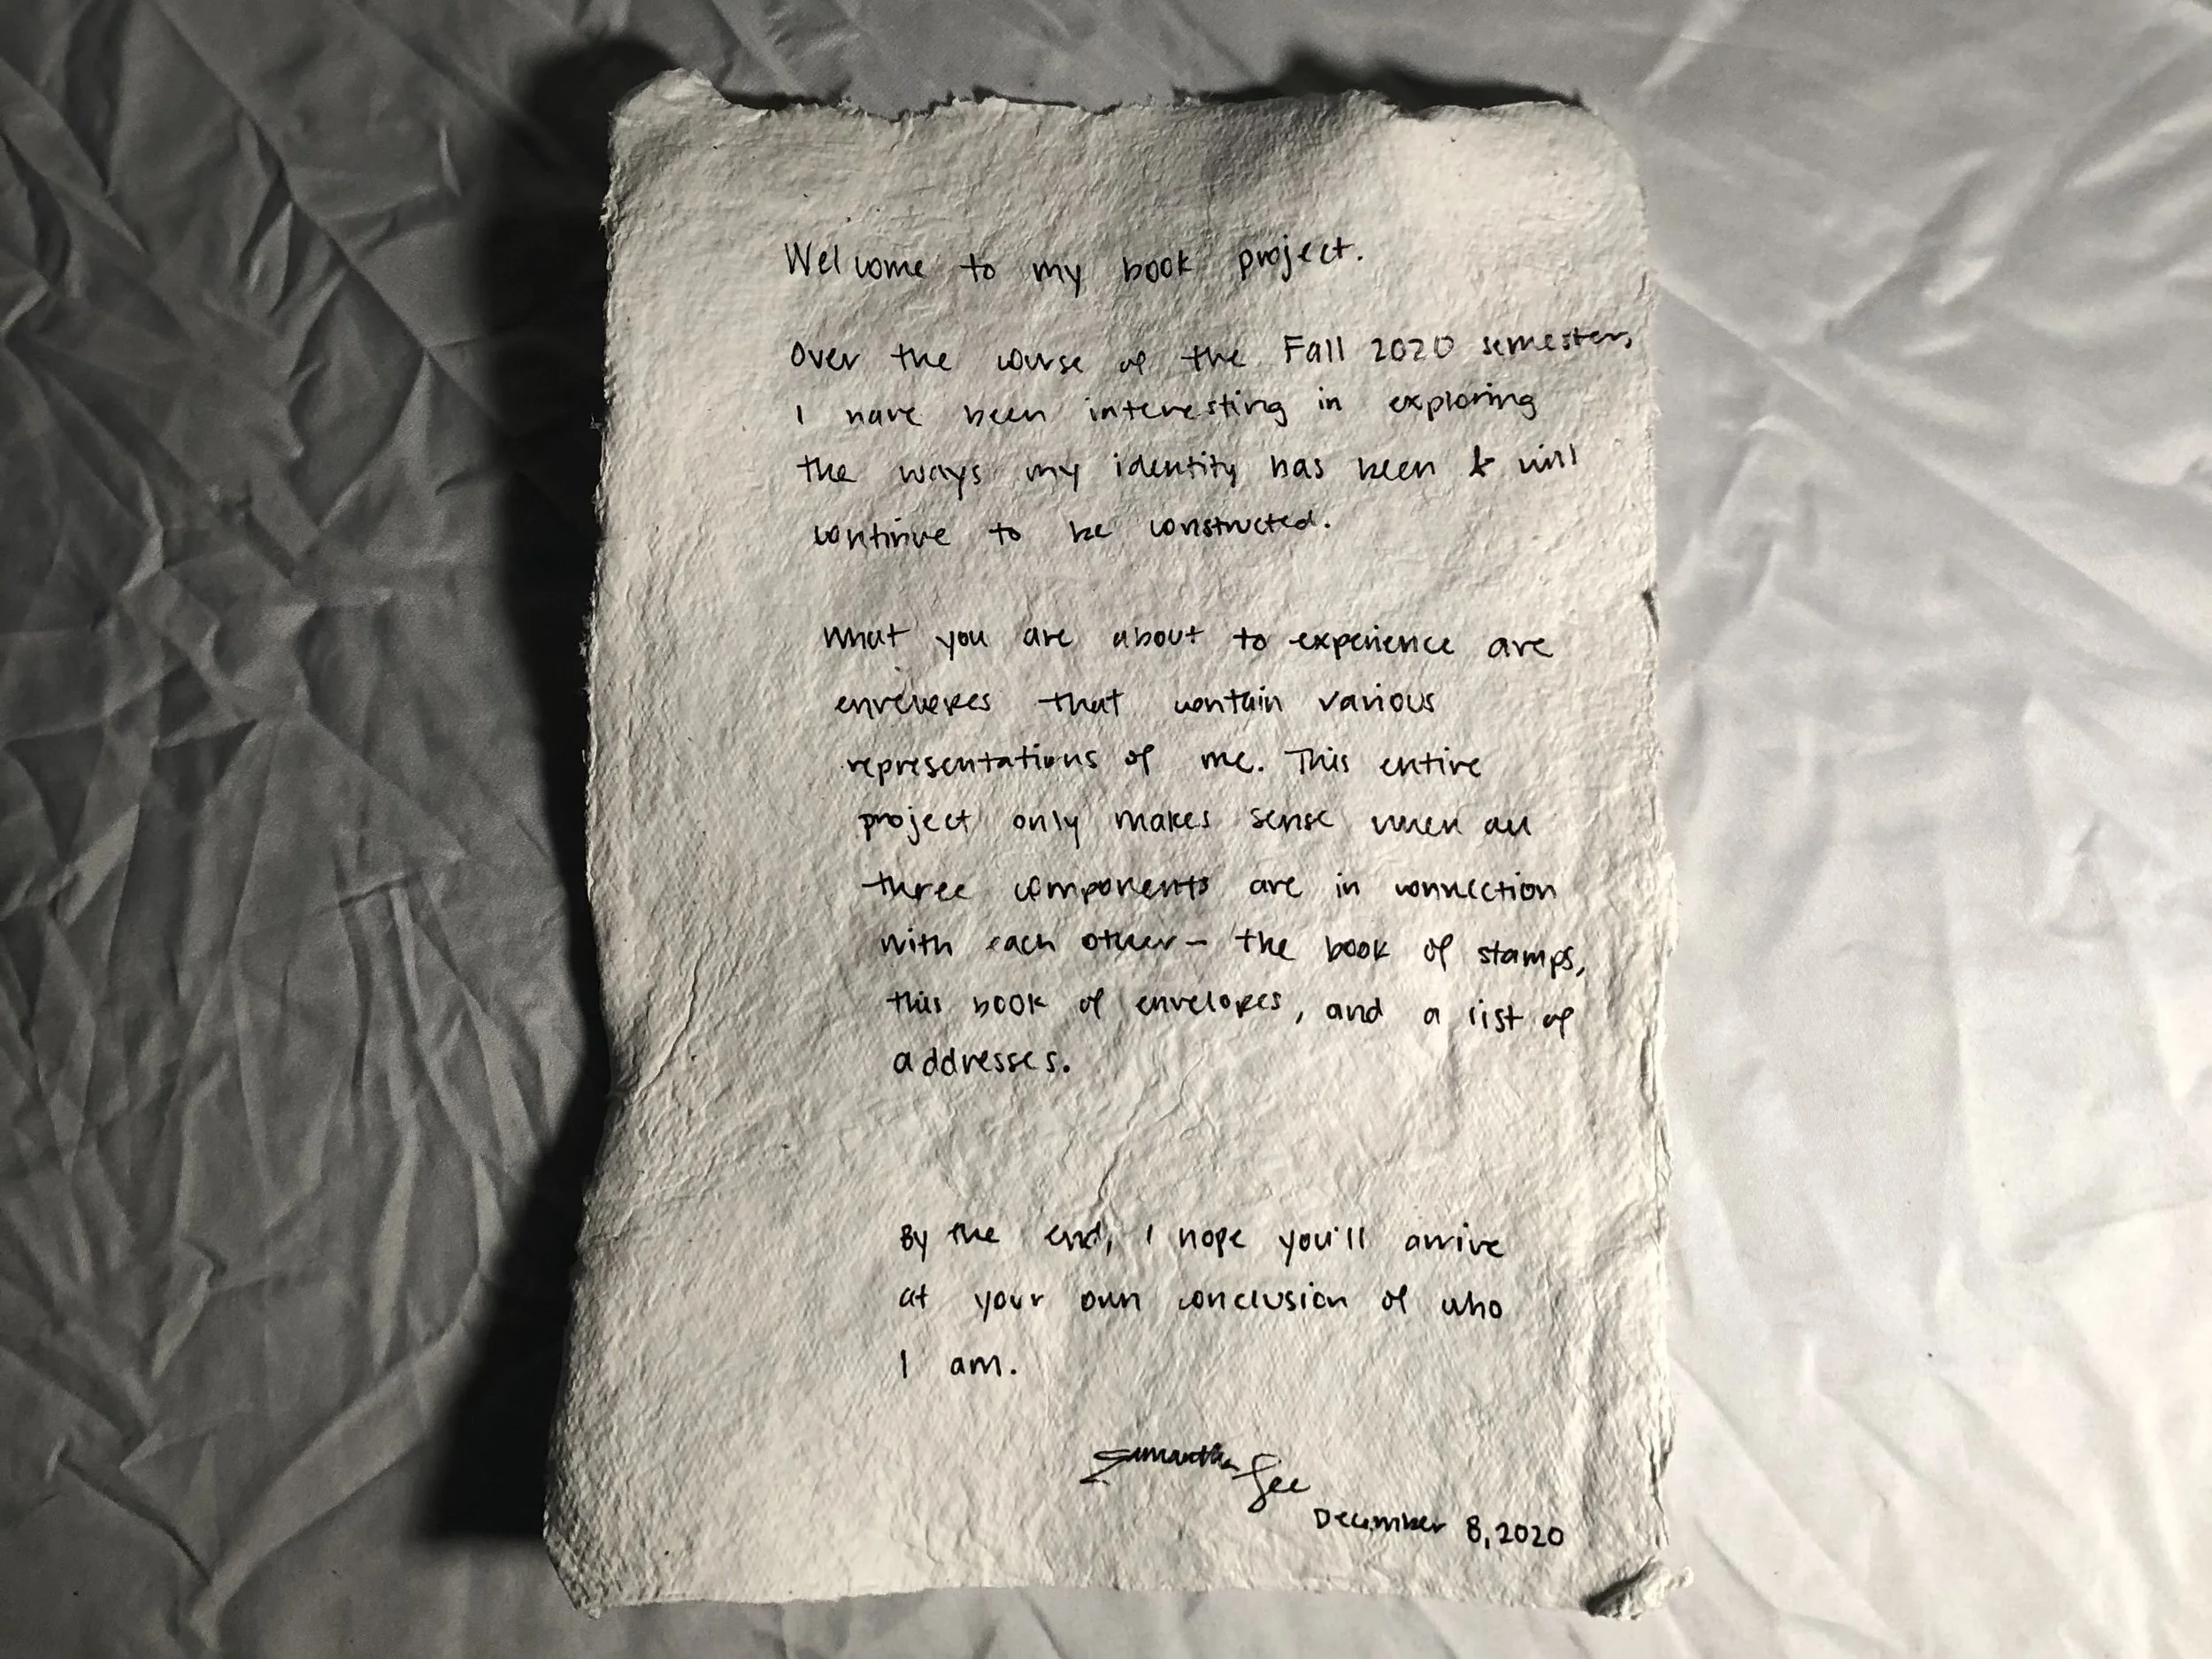 Welcome to my book project.
Over the course of the Fall 2020 semester,
I have been interesting in exploring
the ways my identity has been & will
continue to be constructed.
What you are about to experience are
envelopes that contain various
representations of me. This entire
project only makes sense when all
three components are in connection
with each other - the book of stamps,
this book of envelopes, and a list of
addresses.
By the end, I hope you'll arrive
at your own conclusion of who
I am.
Samantha Gee
December 8, 2020